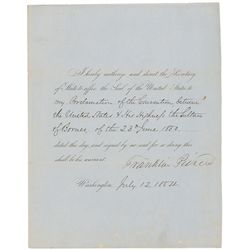 I hereby authorize and direct the Secretary
of State to affix the Seal of the United States to
my Proclamation of the Convention between
the United States & His Highness the Sultan
of Borneo of the 23rd June, 1850
dated this day, and signed by me and for so doing this
shall be his warrant.
Franklin Pierce
Washington, July 12, 1854.